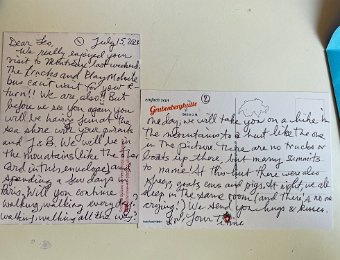 Dear Leo, July 15, 2021
We really enjoyed your
visit to last weekend.
The trucks and Playmobile
bus can't wait for your re-
turn!! We are also! But
before we see you again you
will be having fun at the
sea shore with your parents
and J & B. We will be in
the mountains like the other
card in this envelope) and
spending a few days in
Paris. Will you continue
walking, walking every day?
walking, walking all the way?
einfach raus
Grutenberghütte
One day, we will take you on a hike in
the mountains to a hut like the one
in the picture. There are no trucks or
boats up there, but many summits
to name! At this hut there were also
sheep, goats, cows and pigs. At night, we all
sleep in the same room (and there's no
crying!) We send you hugs & kisses.
Your